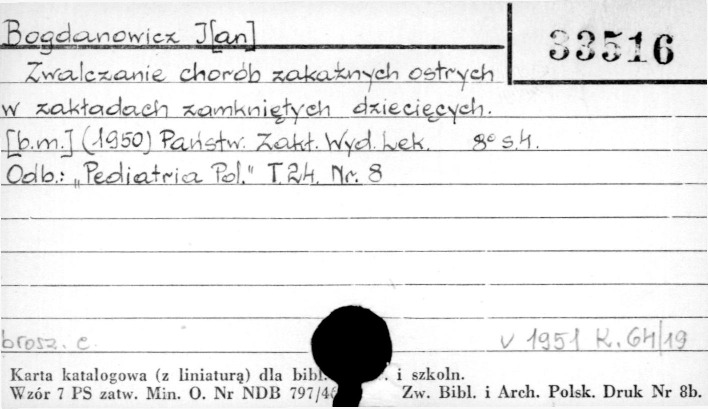 Bogdanowicz J[an]
33516
Zwalczanie chorób zakaźnych ostrych
w zakładach zamkniętych dziecięcych.
[b.m.] (1950) Państw. Zakł. Wyd. Lek. 8° s.4.
Odb.: „Pediatria Pol." T.24. Nr. 8
brosz. c. V 1951 K. 64/19
Karta katalogowa (z liniaturą) dla bibl. i szkoln.
Wzór 7 PS zatw. Min. O. Nr NDB 797/46 Zw. Bibl. i Arch. Polsk. Druk Nr 8b.